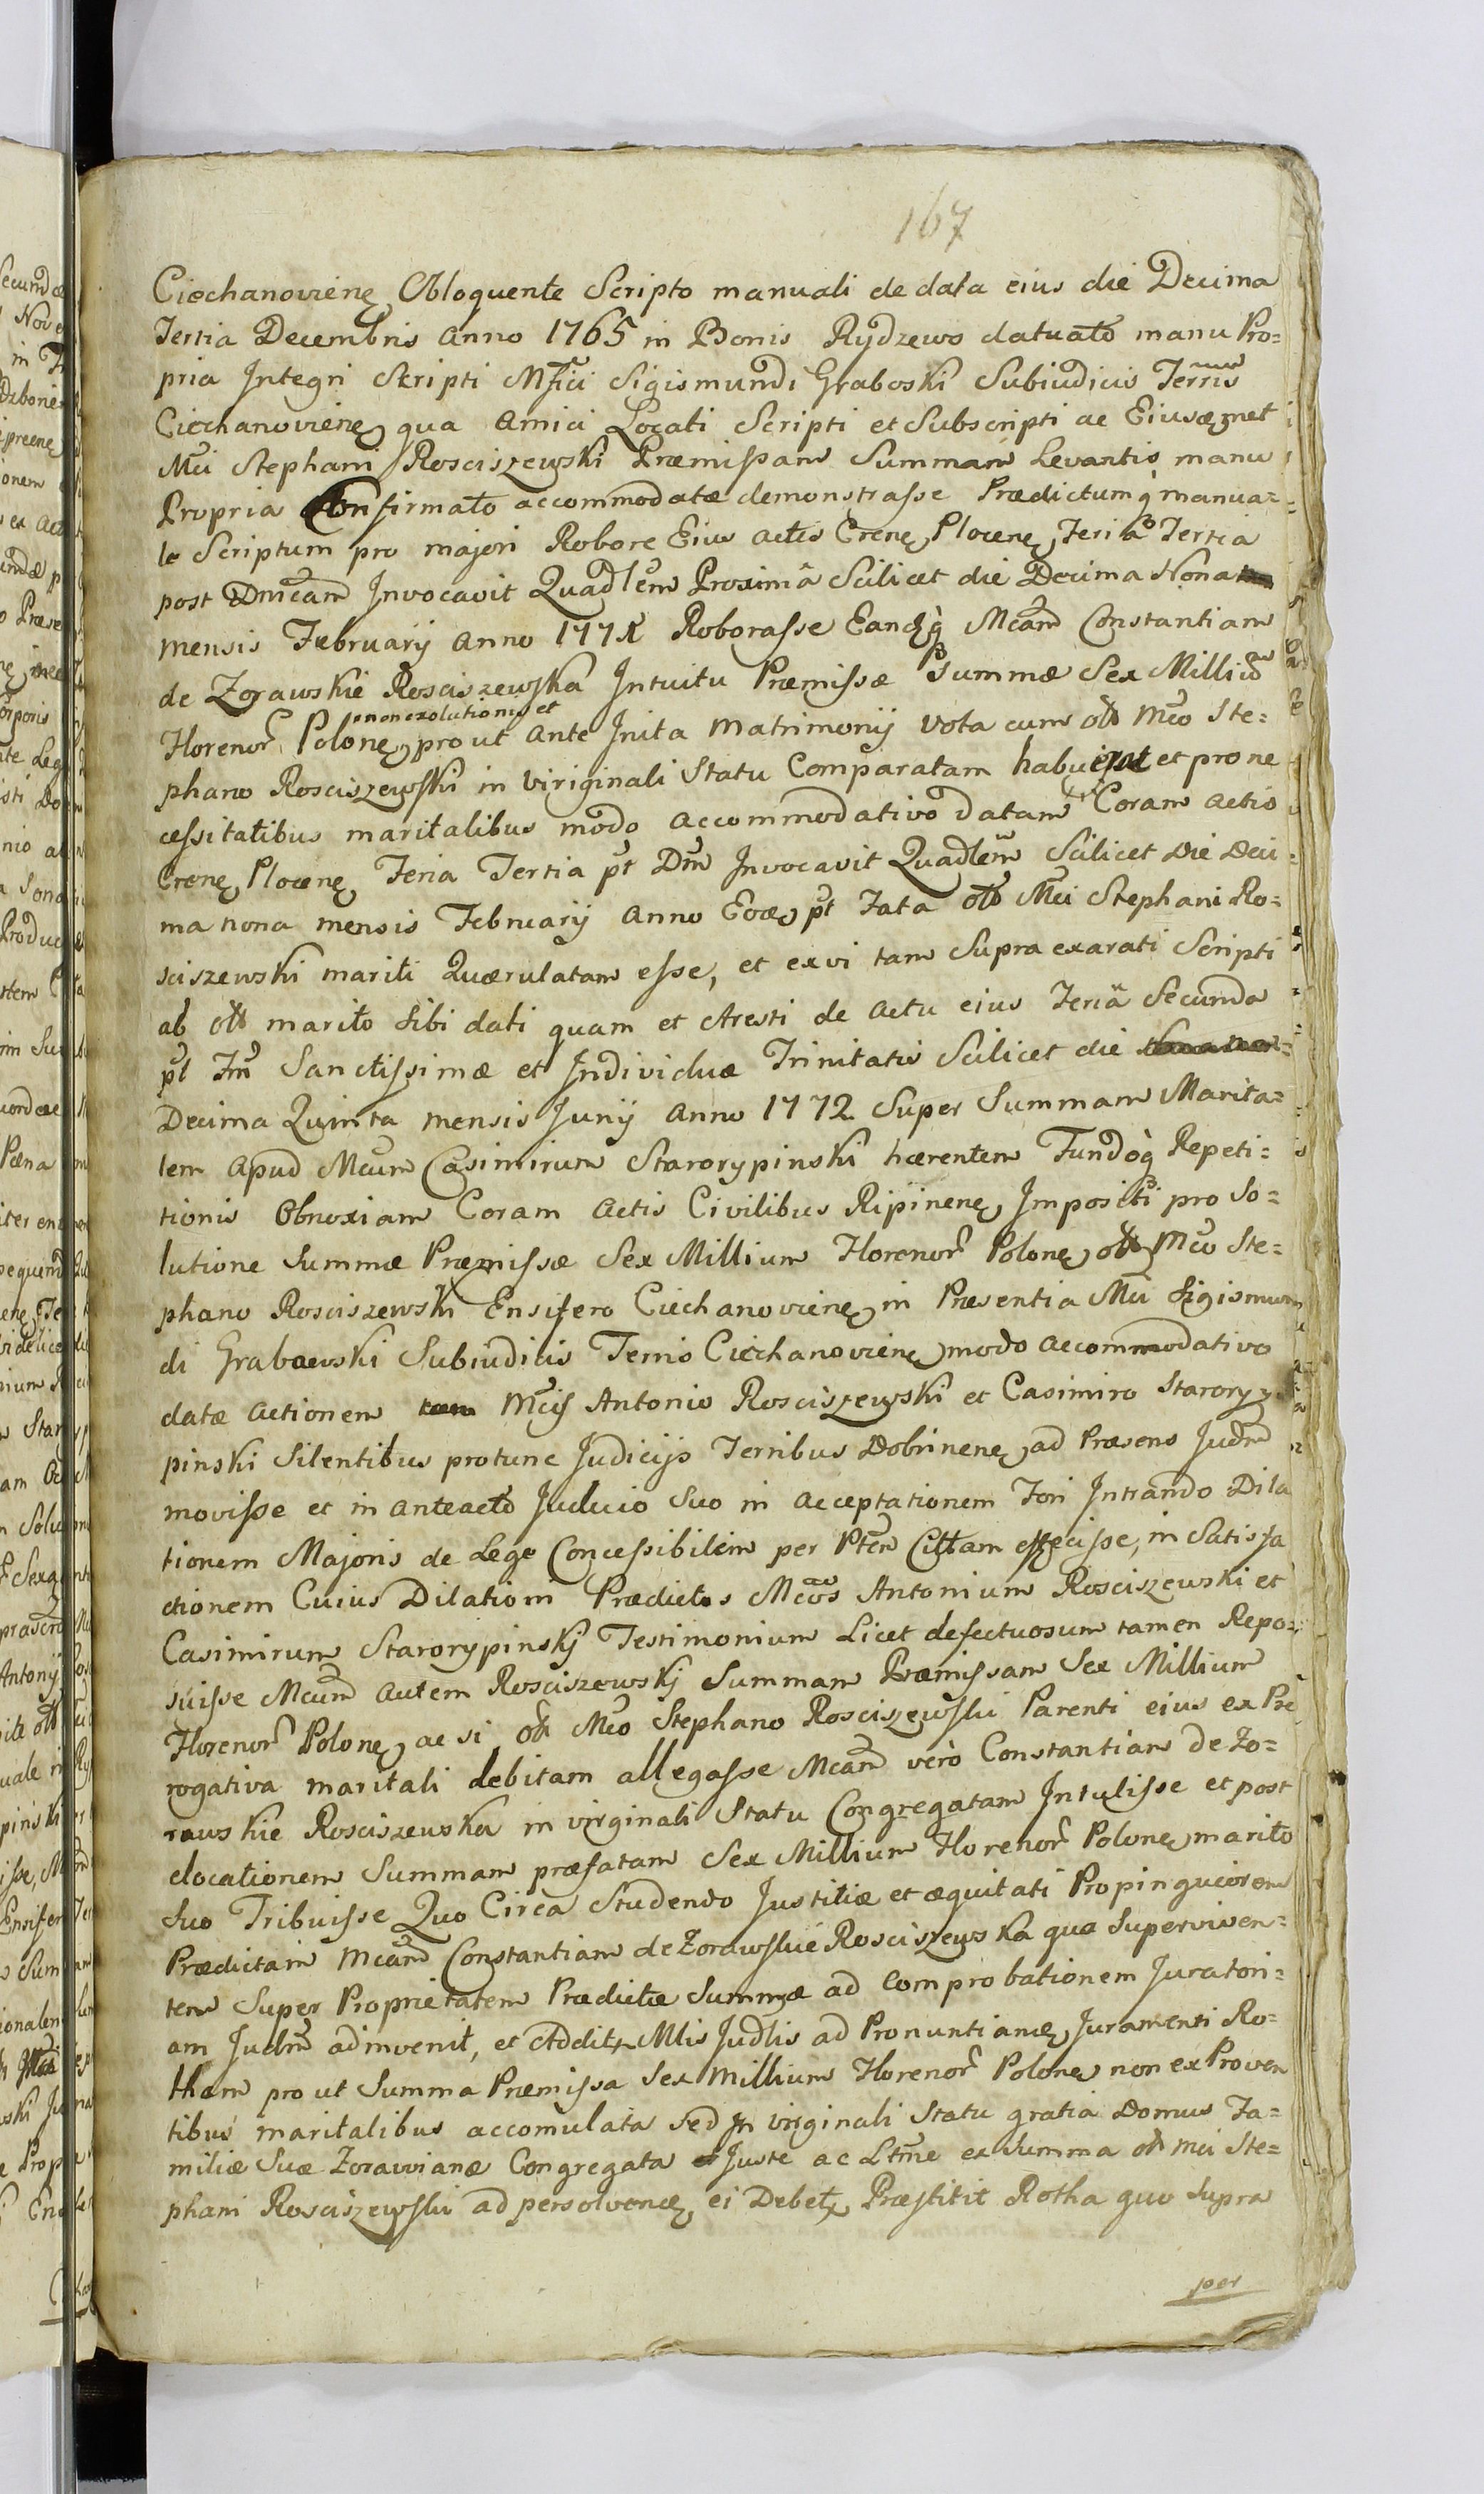 167
Ciechanovienę Obloquente Scripto manuali de data eius die Decima
Tertia Decembris Anno 1765 in Bonis Rydzewo datuato manu Pro=
pria Integri Scripti Mfici Sigismundi Graboski Subiudicis Terris
Ciechanovienę qua Amici Locati Scripti et Subscripti ac Eiusdęmet
Mci Stephani Rosciszewski Præmissam Summam Levantis manu
Propria Confirmato accommodatæ demonstrasse Prædictumq manua=
le Scriptum pro majori Robore Eius Actis Crenę Plocenę Feria Tertia
post Dnicam Invocavit Quadlem Proxima Scilicet die Decima Nona
mensis February Anno 177 Roborasse Eandq Mcam Constantiam
de Zorawskie Rosciszewska Intuitu Præmissæ Summæ Sex Milliu
Florenor Polonę non exolutionis et prout Ante Inita Matrimonij Vota cum olt Mco Ste=
phano Rosciszewski in Viriginali Statu Comparatam habu et pro ne
cessitatibus maritalibus modo accommodativo datam Coram Actis
Crenę Plocenę Feria Tertia pt Dm Invocavit Quadlem Scilicet Die Deci=
ma nona mensis February Anno Eoę pt Fata olt Mci Stephani Ro=
sciszewski mariti Quærulatam esse, et ex vi tam Supra exarati Scripti
ab olt marito Sibi dati quam et Aresti de Actu eius Feria Secunda
pt Fm Sanctissimæ et Individuæ Trinitatis Scilicet die
Decima Quinta mensis Juny Anno 1772 Super Summam Marita=
lem Apud Mcum Casimirum Starorypinski hærentem Fundoq Repeti=
tionis Obnoxiam Coram Actis Civilibus Ripinenę Impositi pro So=
lutione Summæ Præmissæ Sex Millium Florenor Polonę olt Mco Ste=
phano Rosciszewski Ensifero Ciechanovienę in Præsentia Mci Sigismun
di Grabowski Subiudicis Terris Ciechanovienę modo accommodativo
datæ Actionem Mcis Antonio Rosciszewski et Casimiro Starory=
pinski Silentibus protunc Judicijs Terribus Dobrinenę ad Præsens Judm
movisse et in anteacto Judicio Suo in Acceptationem Fori Intrando Dila
tionem Majoris de Lege Concessibilem per Ptem Cittam effecisse, in Satisfa
ctionem Cuius Dilationi Prædictos Mcos Antonium Rosciszewski et
Casimirum Starorypinskj Testimonium Licet defectuosum tamen Repo=
suisse Mcum Autem Rosciszewskj Summam Præmissam Sex Millium
Florenor Polonę ac si olt Mco Stephano Rosciszewski Parenti eius ex Præ
rogativa maritali debitam allegasse Mcam vero Constantiam de Zo=
rawskie Rosciszewska in virginali Statu Congregatam Intulisse et post
elocationem Summam præfatam Sex Millium Florenor Polonę marito
Suo Tribuisse Quo Circa Studendo Justitiæ et æquitati Propinquiorem
Prædictam Mcam Constantiam de Zorawskie Rosciszewska qua Superviven=
tem Super Proprietatem Prædictæ Summæ ad Comprobationem Juratori=
am Judm adinvenit, et Addit Mlis Judlis ad Pronuntiandę Juramenti Ro=
tham prout Summa Præmissa Sex Millium Florenor Polonę non ex Proven
tibus maritalibus accomulata sed In virginali Statu gratia Domus Fa=
miliæ Suæ Zoravvianæ Congregata et Juste ac Ltme ex Summa olt Mci Ste=
phani Rosciszewski ad persolvendę ei Debet Præstitit Rotha quo Supra
per